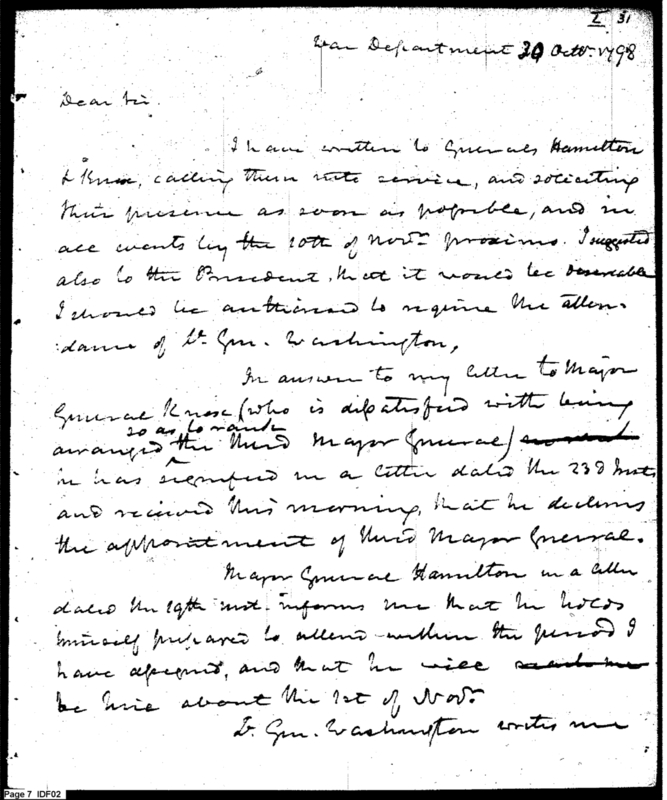 I 31
War Department 30 Octr. 1798
Dear Sir.
I have written to Generals Hamilton
& Knox, calling them into service, and soliciting
their presence as soon as possible, and in
all events by the 10th of Novr. proximo. I suggested
also to the President, that it would be desireable
I should be authorised to require the atten-
:dance of Lt. Gen. Washington,
In answer to my letter to Major
General Knox (who is dissatisfied with being
so as to rank
arranged the third Major General)
he has signified in a letter dated the 23d Inst
and received this morning, that he declines
the appointment of third Major General.
Major General Hamilton in a letter
dated the 19th inst. informs me that he holds
himself prepared to attend within the period I
have assigned, and that he will
be here about the 1st of Novr.
Lt. Gen. Washington writes me
Page 7 IDF02